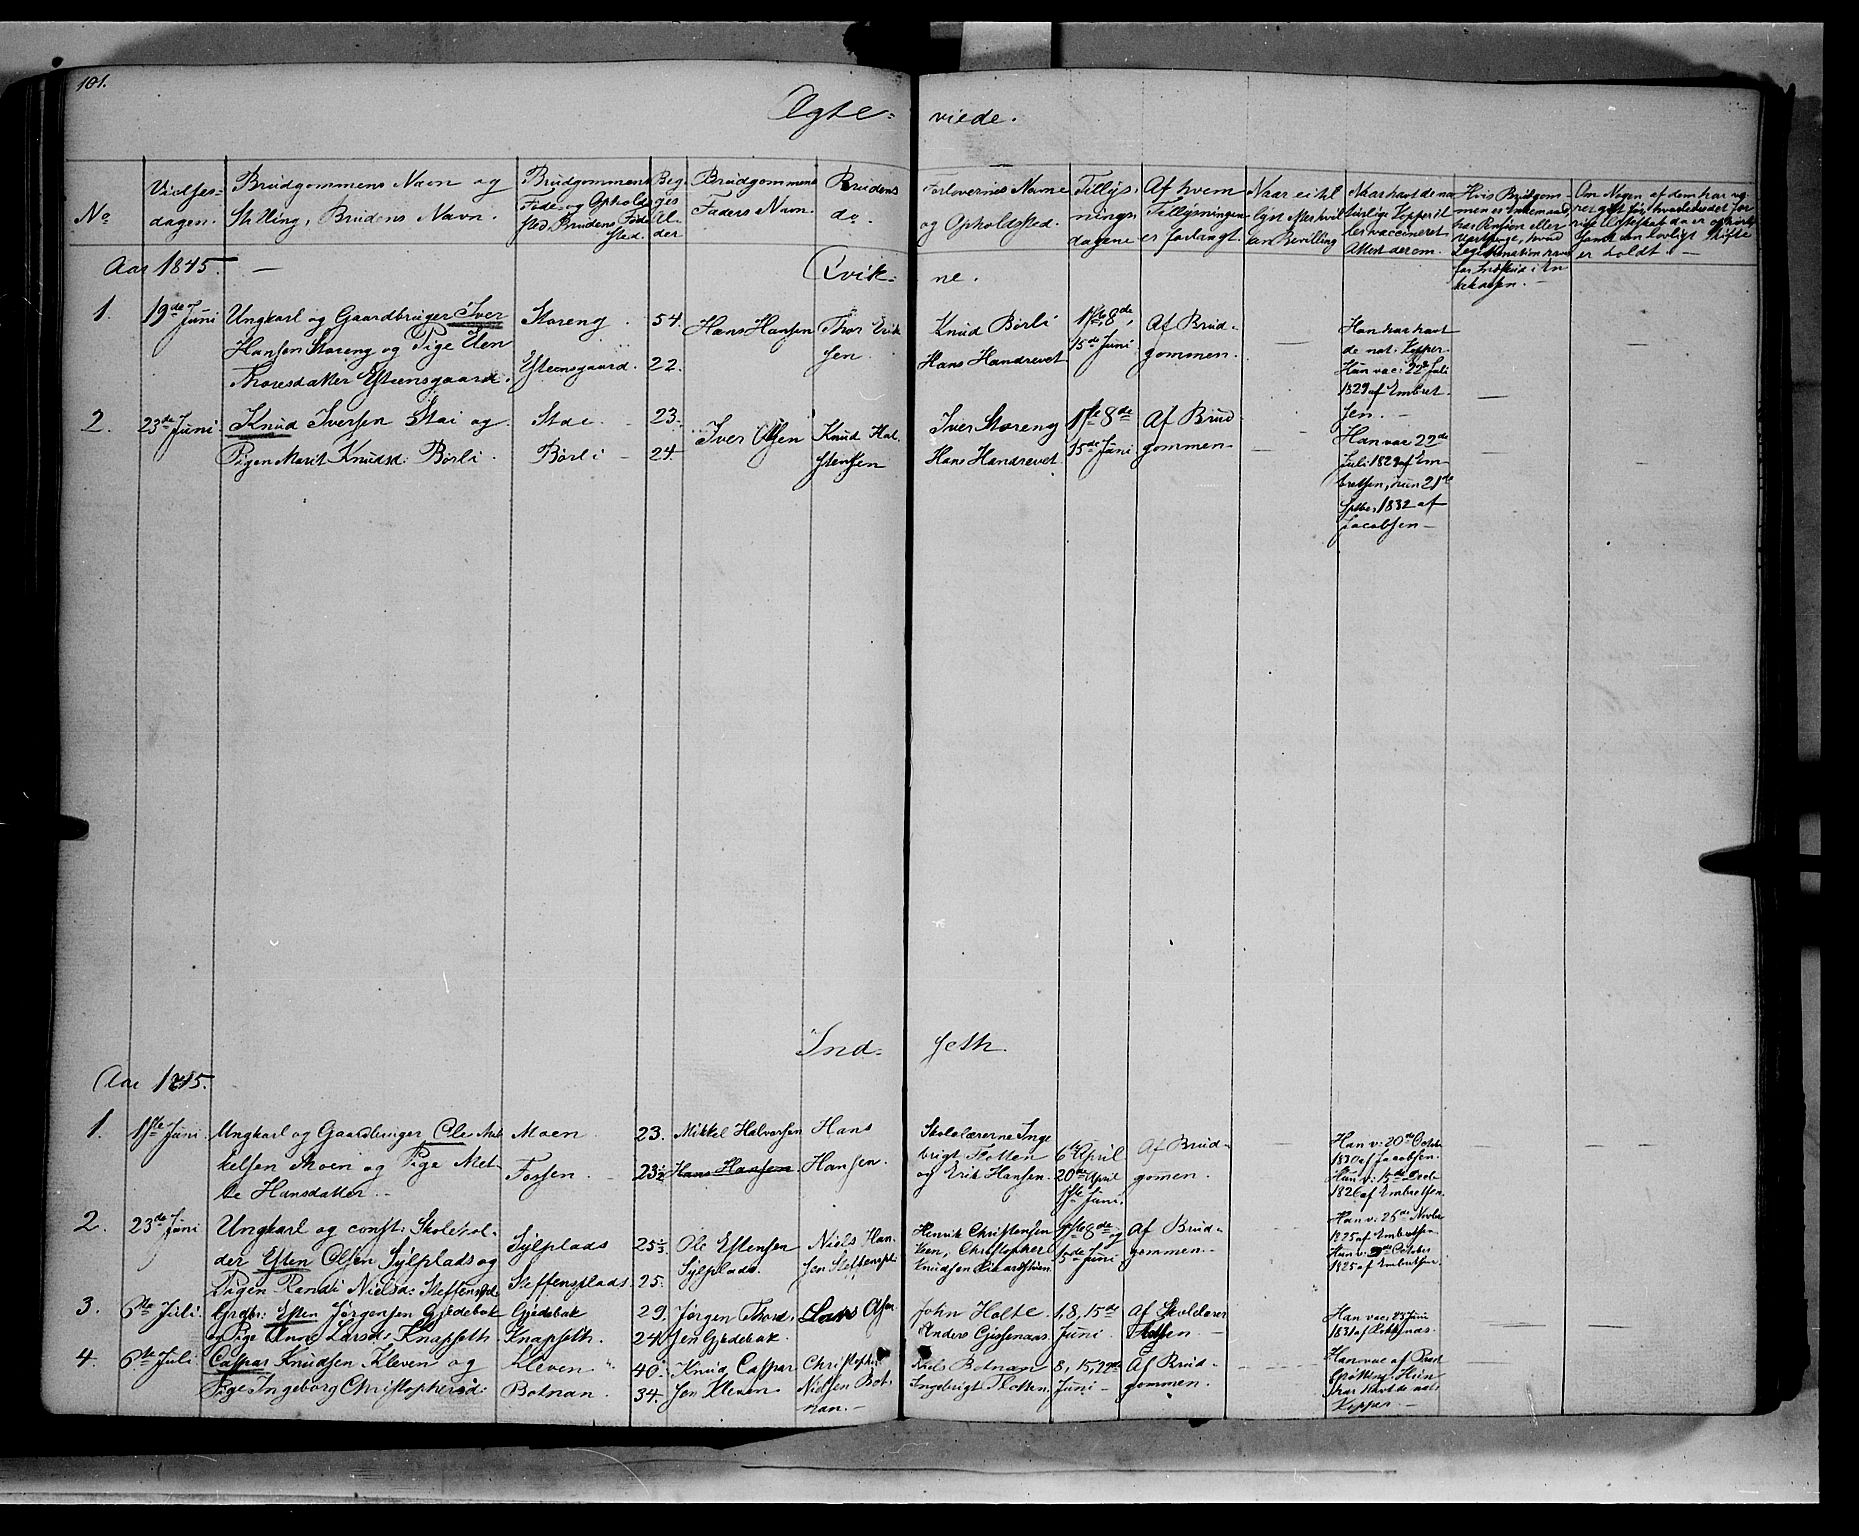 101.
Ægte= viede.
No
Vielses=
dagen.
Brudgommens Navn og
Stilling, Brudens Navn.
Brudgommens
Føde og Opholds
sted, Brudens Føde
sted.
Beg
ges
Al
der
Brudgommens
Faders Navn
Brudens
do.
Forlovernes Navne
og Opholdsted.
Tillys,
nings
dagene
Af hvem
Tillysningen
er forlangt.
Naar ei til
lyst efter hvil
an Bevilling
Naar havt de na
turlige Kopper el
ler vaccineret
Attest derom.
Hvis Brudgom
men er Enkemand,
har Pension eller
for Indskud i En
kekassen.
er holdt.
Aar 1845. —
Qvik= ne.
1. 19de Juni
Ungkarl og Gaardbruger Iver
Hansen Storeng og Pige Elen
Thoresdatter Esteensgaard.
Storeng
Esteensgaard.
54.
22.
Hans Hansen
Thor Erik
sen.
Knud Børli
Hans Handrevet
1ste, 8de,
15de Juni
Af Brud=
gommen.
Han har havt
de nat: Kopper.
Hun vac: 22de Juli
1829 af Embret.
sen. —
2. 23de Juni
Knud Iversen Stai og
Pigen Marit Knudsd: Børli.
Stai
Børli
23.
24
Iver Olsen
Knud Hal
stensen
Iver Storeng
Hans Handrevet
1ste 8de
15de Juni
Af Brud
gommen
Han vac 22de
Juli 1829 af Em
bretsen, hun 21de
Septbr, 1832 af
Jacobsen —
Ind= seth.
Aar 1845.
1. 1ste Juni
Ungkarl og Gaardbruger Ole Mik
kelsen Moen og Pige Met-
te Hansdatter —
Moen
Fossen
23.
23½
Mikkel Halvorsen
Hans Hansen
Hans
Hansen.
Skolelærerne Inge
brigt Flotten
og Erik Hansen.
6te April
20de April
1ste Juni,
Af Brud=
gomen.
Han v: 20de Octobr
1830 af Jacobsen.
Hun v: 15de
1826 af Embretsen.
2. 23de Juni
Ungkarl og const: Skolehol-
der Esten Olsen Sylplads og
Pigen Randi Nielsd: Steffenspl
Sylplads
Steffensplads.
25½
25.
Ole Estensen
Sylplads.
Niels Han
sen Steffenspl
Henrik Christensen
Veen, Christopher
Knudsen
1ste 8de og
15de Juni
Af Brud=
gommen
Han v: 26de Novbr
1825 af Embretsen
Hun v: October
1825 af Embretsen.
3. 6te Juli
Grdbr: Esten Jørgensen Gjedebak
og Pige Anne Larsd: Knapseth
Gjedebak
Knapseth.
29.
24
Jørgen Thord,
sen Gjedebak.
Lars
John Holte.
Anders Gjessenaas.
1, 8, 15de
Juni.
Af Skolelærer
Han vac: 23 Juni
1831 af
4. 6te Juli.
Caspar Knudsen Kleven og
Pige Ingeborg Christophersd:
Kleven
Botnan.
40.
34.
Knud Caspar
sen Kleven
Christopher
Nielsen Bot
nan. —
Niels Botnan
Ingebrigt Flotten,
8, 15, 22de
Juni
Af Brud=
gommen.
Han vac af
Hun
har havt de nat:
Kopper. —